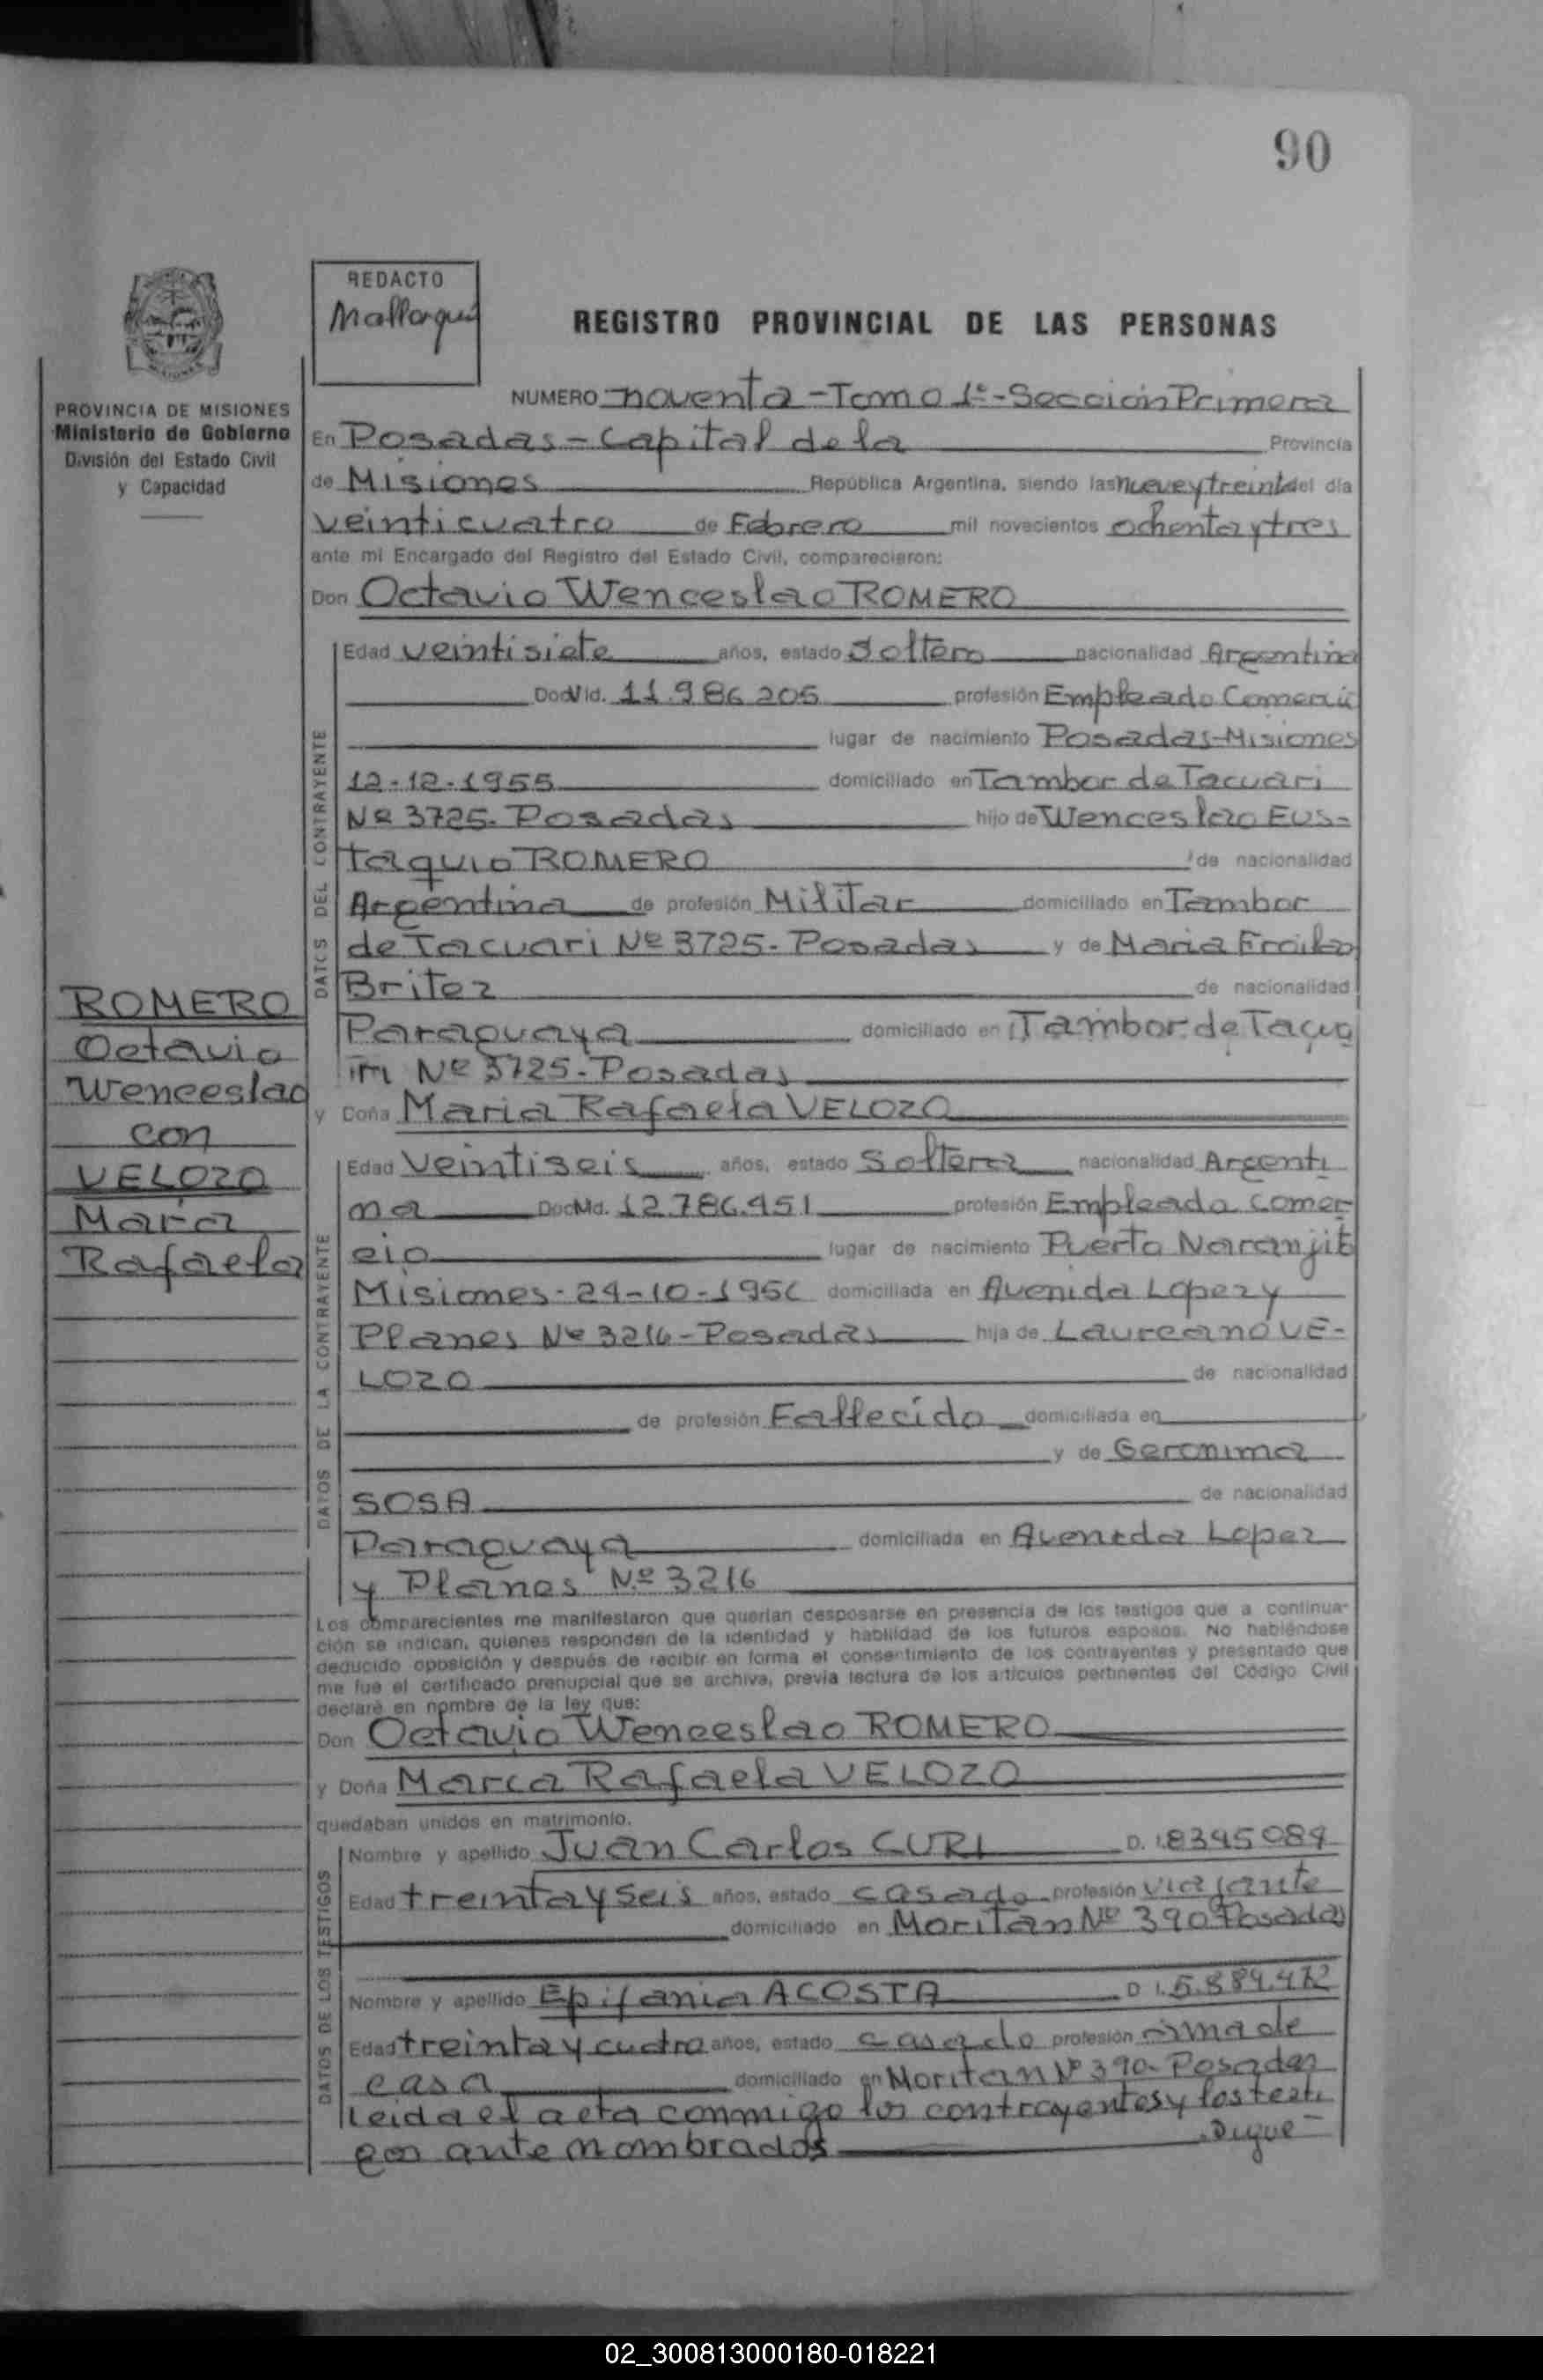 90
REDACTO
Mallorqui
REGISTRO PROVINCIAL DE LAS PERSONAS
PROVINCIA DE MISIONES
Ministerio de Gobierno
División del Estado Civil
y Capacidad
NUMERO noventa - Tomo 1º - Seccion Primera
En Posadas - Capital de la Provincia
de Misiones República Argentina, siendo las nueve y treinta del día
veinticuatro de Febrero mil novecientos ochenta y tres
ante mi Encargado del Registro del Estado Civil, comparecieron:
Don Octavio Wenceslao ROMERO
DATOS DEL CONTRAYENTE
Edad veintisiete años, estado Soltero nacionalidad Argentina
Doc. Id. 11.986.205 profesión Empleado Comercio
lugar de nacimiento Posadas-Misiones
12-12-1955 domiciliado en Tambor de Tacuari
Nº 3725. Posadas hijo de Wenceslao Eus-
taquio ROMERO de nacionalidad
Argentina de profesión Militar domiciliado en Tambor
de Tacuari Nº 3725- Posadas y de Maria Froilan
Britez de nacionalidad
Paraguaya domiciliado en Tambor de Tacua
ri Nº 3725- Posadas
y Doña Maria Rafaela VELOZO
ROMERO
Octavio
Wenceslao
con
VELOZO
Maria
Rafaela
DATOS DE LA CONTRAYENTE
Edad Veintiseis años, estado Soltera nacionalidad Argenti
na Doc. Id. 12.786.451 profesión Empleada comer-
cio lugar de nacimiento Puerto Naranjito
Misiones- 24-10-1956 domiciliada en Avenida Lopez y
Planes Nº 3216 - Posadas hija de Laureano VE-
LOZO de nacionalidad
de profesión Fallecido domiciliada en
y de Geronima
SOSA de nacionalidad
Paraguaya domiciliada en Avenida Lopez
y Planes Nº 3216
Los comparecientes me manifestaron que querían desposarse en presencia de los testigos que a continua-
ción se indican, quienes responden de la identidad y habilidad de los futuros esposos. No habiéndose
deducido oposición y después de recibir en forma el consentimiento de los contrayentes y presentado que
me fue el certificado prenupcial que se archiva, previa lectura de los artículos pertinentes del Código Civil
declaré en nombre de la ley que:
Don Octavio Wenceslao ROMERO
y Doña Maria Rafaela VELOZO
quedaban unidos en matrimonio.
DATOS DE LOS TESTIGOS
Nombre y apellido Juan Carlos CURI D. I. 8345089
Edad treinta y seis años, estado casado profesión viajante
domiciliado en Moritan Nº 390 Posadas
Nombre y apellido Epifania ACOSTA D. I. 5.884.472
Edad treinta y cuatro años, estado casado profesión ama de
casa domiciliado en Moritan Nº 390- Posadas
Leida el acta conmigo los contrayentes y los testi
gos ante nombrados Sigue-
02_300813000180-018221